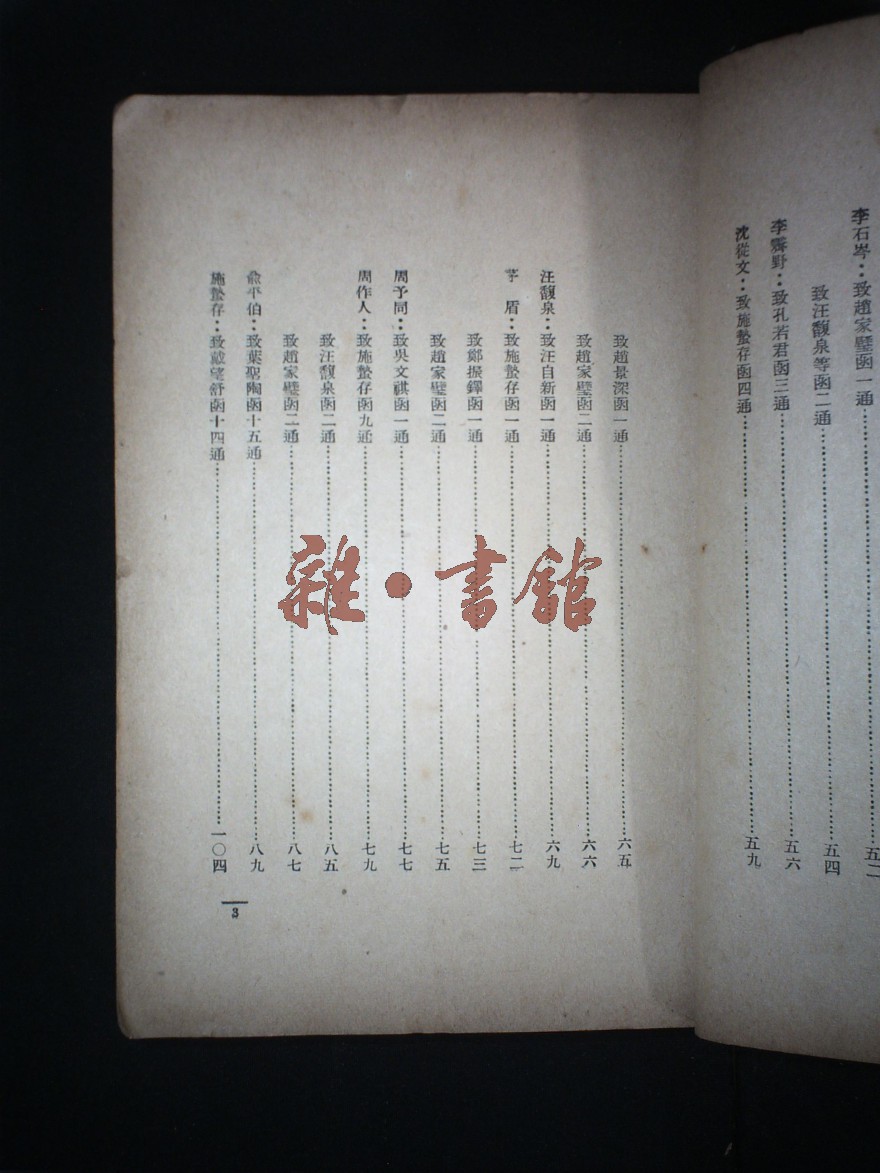 李石岑：致趙家璧函一通……五二
致汪馥泉等函二通……五四
李霽野：致孔若君函三通……五六
沈從文：致施蟄存函四通……五九
致趙景深函一通……六五
致趙家璧函二通……六六
汪馥泉：致汪自新函一通……六九
茅　盾：致施蟄存函一通……七二
致鄭振鐸函一通……七三
致趙家璧函二通……七五
周予同：致吳文祺函一通……七七
周作人：致施蟄存函九通……七九
致汪馥泉函二通……八五
致趙家璧函二通……八七
俞平伯：致葉聖陶函十五通……八九
施蟄存：致戴望舒函十四通……一〇四
3
雜·書館